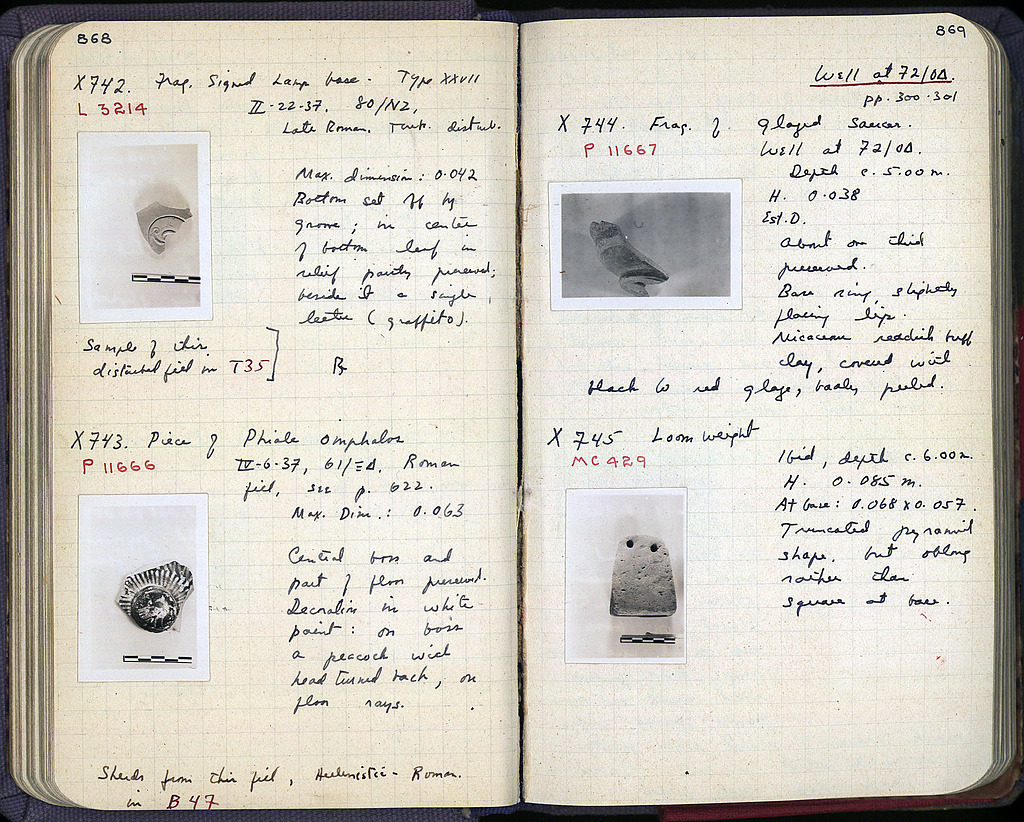 868
X742. Frag. Signed Lamp base - Type XXVII
L 3214
II-22-37. 80/NZ,
Late Roman. Turk. disturb.
Max. dimension: 0.042
Bottom set off by
groove; in center
of bottom leaf in
relief partly preserved;
beside it a single
letter (graffito).
Sample of this
disturbed fill in T35
X743. Piece of Phiale omphalos
P 11666
IV-6-37, 61/ΞΔ. Roman
fill, see p. 622.
Max. Dim.: 0.063
Central boss and
part of floor preserved.
Decoration in white
paint: on boss
a peacock with
head turned back, on
floor rays.
Sherds from this fill, Hellenistic - Roman.
in B 47
869
Well at 72/ΟΔ.
pp. 300-301
X 744. Frag. of glazed saucer.
P 11667
Well at 72/ΟΔ.
Depth c. 5.00 m.
H. 0.038
Est. D.
About one third
preserved.
Base ring, slightly
flaring lip.
Micaceous reddish buff
clay, covered with
black to red glaze, badly peeled.
X 745 Loom weight
MC 429
Ibid, depth c. 6.00 m.
H. 0.085 m.
At base: 0.068 x 0.057.
Truncated pyramid
shape, but oblong
rather than
square at base.